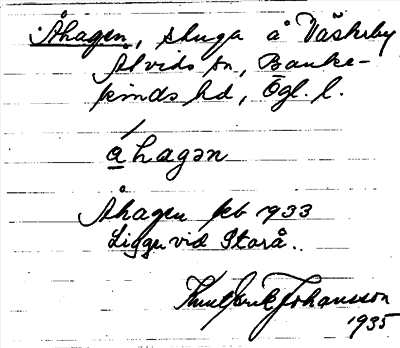 Åhagen, stuga å Väsherby
Åtvids sn, Banke-
kinds hd, Ögl. l.
áhagən
Åhagen jeb 1933
Ligger vid Storå.
Knut Erik Johansson
1935